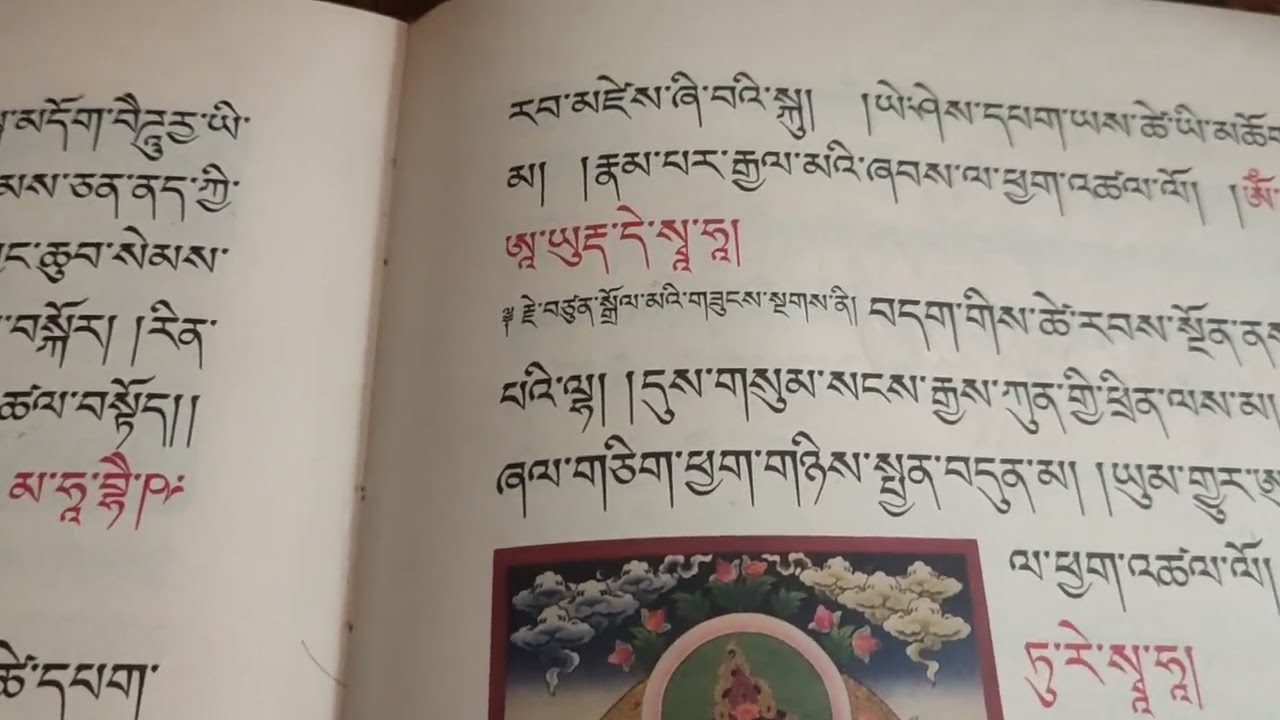 མདོག་བཻཌཱུརྱ་ཡི་
མས་ཅན་ནད་ཀྱི་
ང་ཆུབ་སེམས་
བསྐོར། །རིན་
ཚལ་བསྟོད།།
མ་ཧཱ་བྷཻ་
ཚེ་དཔག་
རབ་མཛེས་ཞི་བའི་སྐུ། །ཡེ་ཤེས་དཔག་ཡས་ཚེ་ཡི་མཆོག
མ། །རྣམ་པར་རྒྱལ་མའི་ཞབས་ལ་ཕྱག་འཚལ་ལོ། །ཨོཾ་
ཨཱ་ཡུརྡ་དེ་སྭཱ་ཧཱ།
༈ རྗེ་བཙུན་སྒྲོལ་མའི་གཟུངས་སྔགས་ནི། བདག་གིས་ཚེ་རབས་སྔོན་ནས
པའི་ལྷ། །དུས་གསུམ་སངས་རྒྱས་ཀུན་གྱི་ཕྲིན་ལས་མ།
ཞལ་གཅིག་ཕྱག་གཉིས་སྤྱན་བདུན་མ། །ཡུམ་གྱུར་
ལ་ཕྱག་འཚལ་ལོ།
ཏུ་རེ་སྭཱ་ཧཱ།